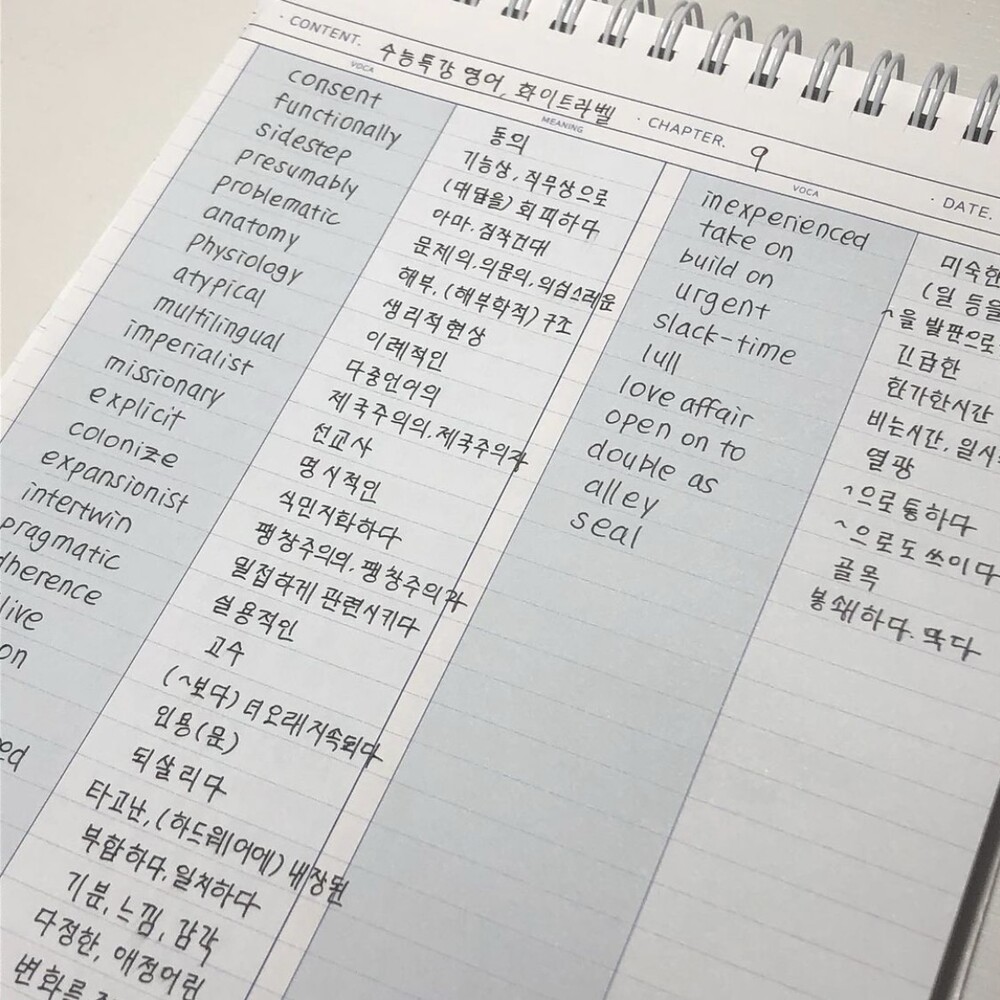 · CONTENT. 수능특강 영어, 화이트라벨 · CHAPTER. 9 · DATE.
VOCA
consent
functionally
sidestep
presumably
problematic
anatomy
physiology
atypical
multilingual
imperialist
missionary
explicit
colonize
expansionist
intertwin
pragmatic
MEANING
동의
기능상, 직무상으로
(대답을) 회피하다
아마, 짐작건대
문제의, 의문의, 의심스러운
해부, (해부학적) 구조
생리적 현상
이례적인
다중언어의
제국주의의, 제국주의자
선교사
명시적인
식민지화하다
팽창주의의, 팽창주의자
밀접하게 관련시키다
실용적인
고수
(~보다) 더 오래 지속되다
인용(문)
되살리다
타고난, (하드웨어에) 내장된
부합하다, 일치하다
기분, 느낌, 감각
다정한, 애정어린
변화를
VOCA
inexperienced
take on
build on
urgent
slack-time
lull
love affair
open on to
double as
alley
seal
미숙한
(일 등을
~을 발판으로
긴급한
한가한시간
비는시간, 일시
열광
~으로 통하다
~으로도 쓰이다
골목
봉쇄하다. 막다